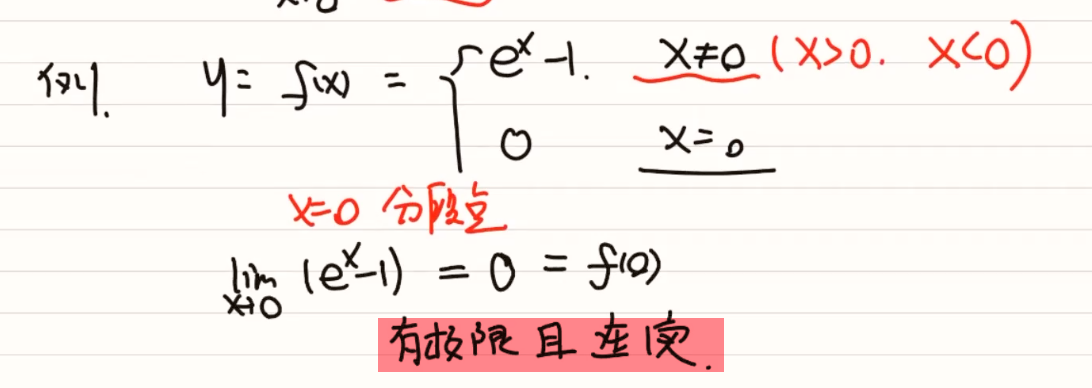 例1. y = f(x) = { e^x - 1. x≠0 (x>0. x<0)
0 x=0
x=0 分段点
lim x→0 (e^x-1) = 0 = f(0)
有极限且连续.